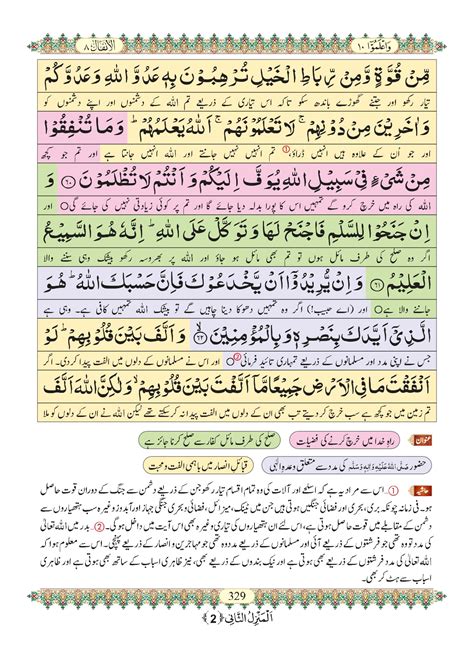 وَاعْلَمُوْۤا ١٠
اَلْاَنْفَال ٨
مِّنْ قُوَّةٍ وَّمِنْ رِّبَاطِ الْخَیْلِ تُرْهِبُوْنَ بِهٖ عَدُوَّ اللّٰهِ وَعَدُوَّكُمْ
تیار رکھو اور جتنے گھوڑے باندھ سکو تاکہ اس تیاری کے ذریعے تم اللہ کے دشمنوں اور اپنے دشمنوں کو
وَاٰخَرِیْنَ مِنْ دُوْنِهِمْ ۚ لَا تَعْلَمُوْنَهُمْ ۚ اَللّٰهُ یَعْلَمُهُمْ ؕ وَمَا تُنْفِقُوْا
اور جو اُن کے علاوہ ہیں انہیں ڈراؤ، ① تم انہیں نہیں جانتے اور اللہ انہیں جانتا ہے اور تم جو کچھ
مِنْ شَیْءٍ فِیْ سَبِیْلِ اللّٰهِ یُوَفَّ اِلَیْكُمْ وَاَنْتُمْ لَا تُظْلَمُوْنَ ﴿٦٠﴾ وَ
اللہ کی راہ میں خرچ کرو گے تمہیں اس کا پورا بدلہ دیا جائے گا اور تم پر کوئی زیادتی نہیں کی جائے گی○ اور
اِنْ جَنَحُوْا لِلسَّلْمِ فَاجْنَحْ لَهَا وَتَوَكَّلْ عَلَی اللّٰهِ ؕ اِنَّهٗ هُوَ السَّمِیْعُ
اگر وہ صلح کی طرف مائل ہوں تو تم بھی مائل ہو جاؤ اور اللہ پر بھروسہ رکھو بیشک وہی سننے والا
الْعَلِیْمُ ﴿٦١﴾ وَاِنْ یُّرِیْدُوْۤا اَنْ یَّخْدَعُوْكَ فَاِنَّ حَسْبَكَ اللّٰهُ ؕ هُوَ
جاننے والا ہے○ اور (اے حبیب!) اگر وہ تمہیں دھوکا دینا چاہیں گے تو بیشک اللہ تمہیں کافی ہے۔ وہی ہے
الَّذِیْۤ اَیَّدَكَ بِنَصْرِهٖ وَبِالْمُؤْمِنِیْنَ ﴿٦٢﴾ وَاَلَّفَ بَیْنَ قُلُوْبِهِمْ ؕ لَوْ
جس نے اپنی مدد اور مسلمانوں کے ذریعے تمہاری تائید فرمائی② ○ اور اس نے مسلمانوں کے دلوں میں الفت پیدا کردی۔ اگر
اَنْفَقْتَ مَا فِی الْاَرْضِ جَمِیْعًا مَّاۤ اَلَّفْتَ بَیْنَ قُلُوْبِهِمْ وَلٰكِنَّ اللّٰهَ اَلَّفَ
تم زمین میں جو کچھ ہے سب خرچ کر دیتے تب بھی ان کے دلوں میں الفت پیدا نہ کرسکتے تھے لیکن اللہ نے ان کے دلوں کو ملا
عنوان
راہِ خدا میں خرچ کرنے کی فضیلت
صلح کی طرف مائل کفار سے صلح کرنا جائز ہے
حضور صَلَّی اللهُ عَلَیْهِ وَاٰلِهٖ وَسَلَّم کی مدد سے متعلق وعدۂ الٰہی
قبائلِ انصار میں باہمی الفت و محبت
حاشیہ ①۔ اس سے مراد یہ ہے کہ اسلحے اور آلات کی وہ تمام اقسام تیار رکھو جن کے ذریعے دشمن سے جنگ کے دوران قوت حاصل
ہو۔ فی زمانہ چونکہ بری، بحری اور فضائی قوتوں کے ذریعے جنگیں ہوتی ہیں جن میں ٹینک، میزائل، جنگی جہاز اور آبدوز وغیرہ سب ہتھیاروں سے
دشمن کے مقابلے میں قوت حاصل ہوتی ہے اس لئے ان ہتھیاروں کی تیاری وغیرہ بھی اس آیت میں داخل ہوگی۔ ②۔ بدر میں اللہ تعالیٰ
کی مدد تو وہ تھی جو فرشتوں کے ذریعے آئی اور مسلمانوں کے ذریعے مدد وہ تھی جو مہاجرین و انصار کے ذریعے پہنچی۔ اس سے معلوم ہوا کہ
اللہ تعالیٰ کی مدد فرشتوں کے ذریعے بھی ہوتی ہے اور نیک بندوں کے ذریعے بھی، یونہی ظاہری اسباب کے ساتھ بھی ہوتی ہے اور ظاہری
اسباب سے ہٹ کر بھی۔
329
اَلْمَنْزِلُ الثَّانِی ﴿2﴾